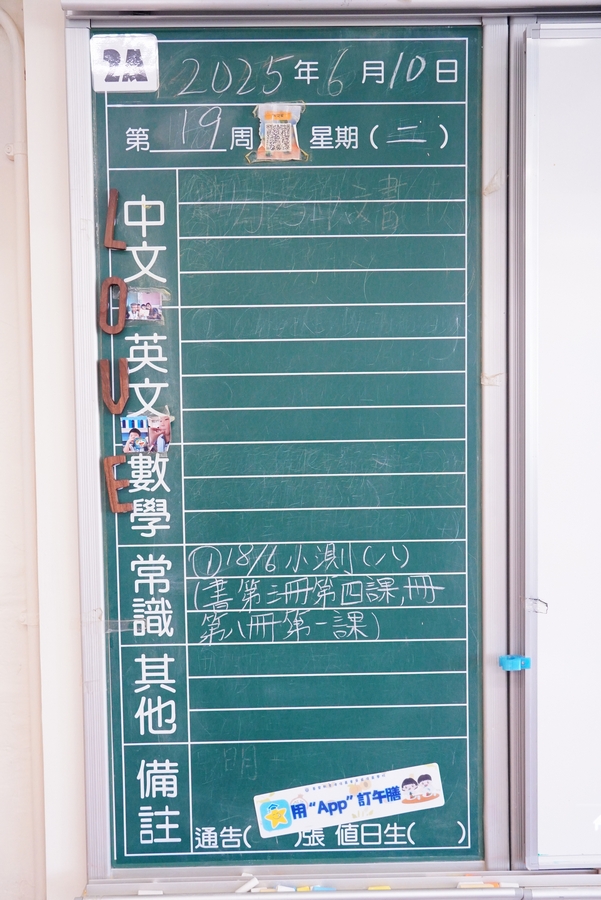 2A
2025年6月10日
第19周 星期(二)
LOVE
中文
英文
數學
常識
①18/6小測(八)
(書第三冊第四課,冊
第八冊第一課)
其他
備註
用“App”訂午膳
通告( )張 值日生( )